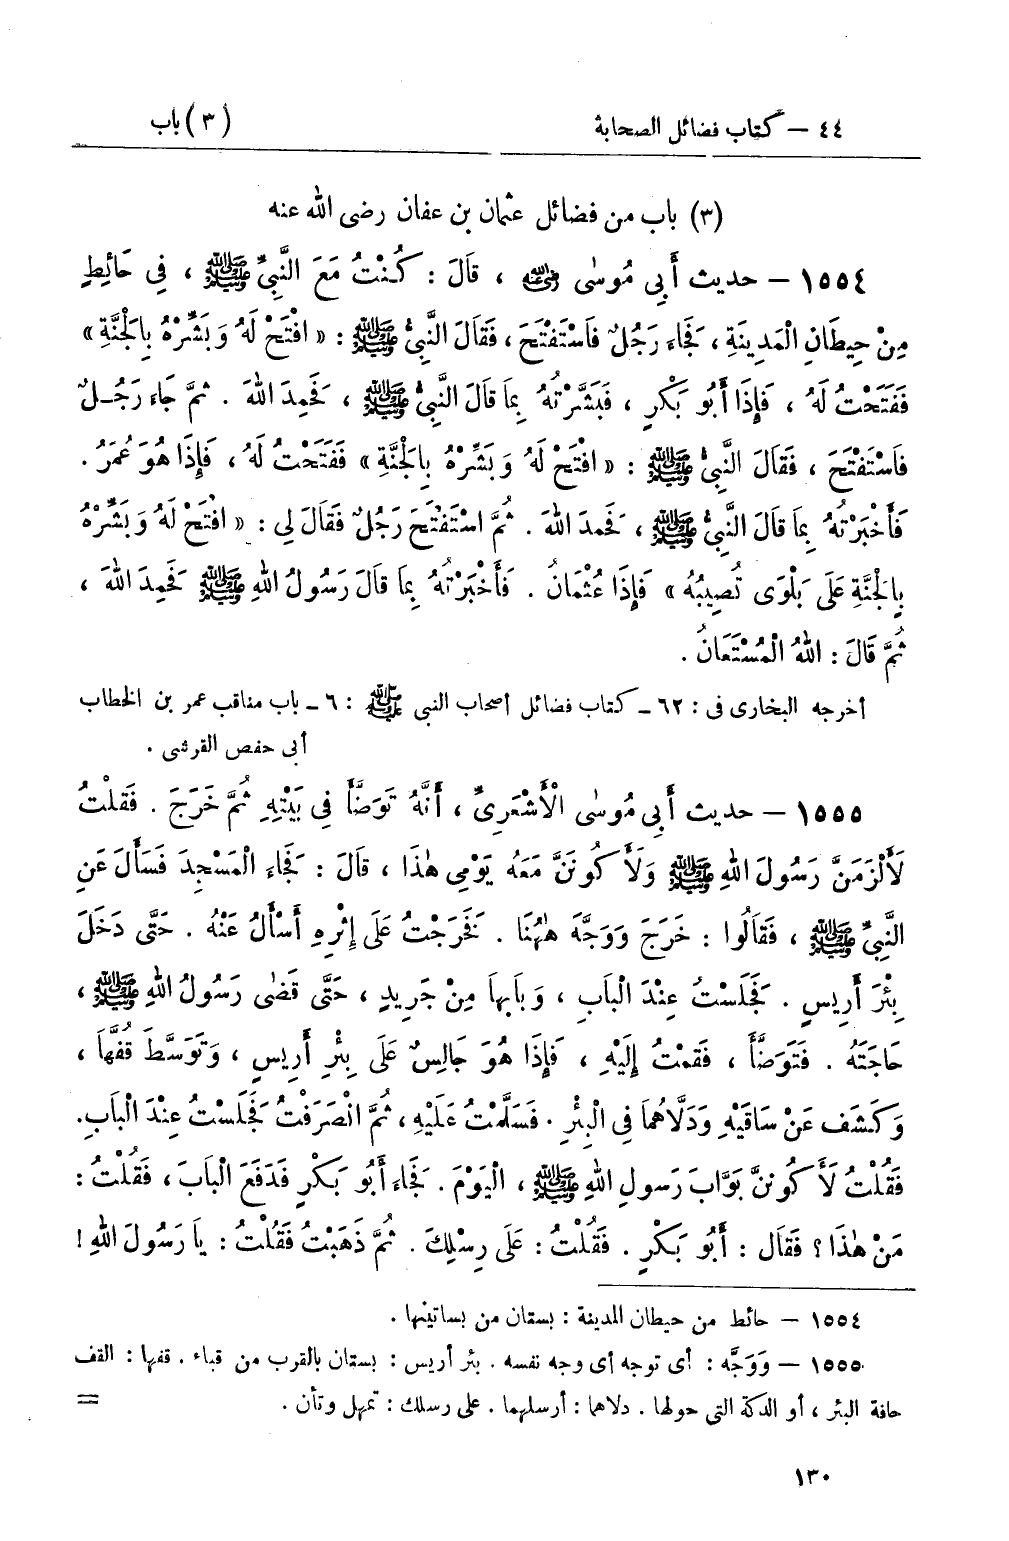 ٤٤ – كتاب فضائل الصحابة (٣) باب
(٣) باب من فضائل عثمان بن عفان رضى الله عنه
١٥٥٤ – حديث أَبِي مُوسٰى رضي الله عنه ، قَالَ : كُنْتُ مَعَ النَّبِيِّ ﷺ ، فِي حَائِطٍ
مِنْ حِيطَانِ الْمَدِينَةِ ، فَجَاءَ رَجُلٌ فَاسْتَفْتَحَ ، فَقَالَ النَّبِيُّ ﷺ : « افْتَحْ لَهُ وَبَشِّرْهُ بِالْجَنَّةِ »
فَفَتَحْتُ لَهُ ، فَإِذَا أَبُو بَكْرٍ ، فَبَشَّرْتُهُ بِمَا قَالَ النَّبِيُّ ﷺ ، فَحَمِدَ اللهَ . ثُمَّ جَاءَ رَجُلٌ
فَاسْتَفْتَحَ ، فَقَالَ النَّبِيُّ ﷺ : « افْتَحْ لَهُ وَبَشِّرْهُ بِالْجَنَّةِ » فَفَتَحْتُ لَهُ ، فَإِذَا هُوَ عُمَرُ .
فَأَخْبَرْتُهُ بِمَا قَالَ النَّبِيُّ ﷺ ، فَحَمِدَ اللهَ . ثُمَّ اسْتَفْتَحَ رَجُلٌ فَقَالَ لِي : « افْتَحْ لَهُ وَبَشِّرْهُ
بِالْجَنَّةِ عَلَى بَلْوَى تُصِيبُهُ » فَإِذَا عُثْمَانُ . فَأَخْبَرْتُهُ بِمَا قَالَ رَسُولُ اللهِ ﷺ فَحَمِدَ اللهَ ،
ثُمَّ قَالَ : اللهُ الْمُسْتَعَانُ .
أخرجه البخارى فى : ٦٢ – كتاب فضائل أصحاب النبى ﷺ : ٦ – باب مناقب عمر بن الخطاب
أبى حفص القرشى .
١٥٥٥ – حديث أَبِي مُوسٰى الْأَشْعَرِيِّ ، أَنَّهُ تَوَضَّأَ فِي بَيْتِهِ ثُمَّ خَرَجَ . فَقُلْتُ
لَأَلْزَمَنَّ رَسُولَ اللهِ ﷺ وَلَأَكُونَنَّ مَعَهُ يَوْمِي هٰذَا ، قَالَ : فَجَاءَ الْمَسْجِدَ فَسَأَلَ عَنِ
النَّبِيِّ ﷺ ، فَقَالُوا : خَرَجَ وَوَجَّهَ هٰهُنَا . فَخَرَجْتُ عَلَى إِثْرِهِ أَسْأَلُ عَنْهُ . حَتَّى دَخَلَ
بِئْرَ أَرِيسٍ . فَجَلَسْتُ عِنْدَ الْبَابِ ، وَبَابُهَا مِنْ جَرِيدٍ ، حَتَّى قَضٰى رَسُولُ اللهِ ﷺ ،
حَاجَتَهُ . فَتَوَضَّأَ ، فَقُمْتُ إِلَيْهِ ، فَإِذَا هُوَ جَالِسٌ عَلَى بِئْرِ أَرِيسٍ ، وَتَوَسَّطَ قُفَّهَا ،
وَكَشَفَ عَنْ سَاقَيْهِ وَدَلَّاهُمَا فِي الْبِئْرِ . فَسَلَّمْتُ عَلَيْهِ ، ثُمَّ انْصَرَفْتُ فَجَلَسْتُ عِنْدَ الْبَابِ .
فَقُلْتُ لَأَكُونَنَّ بَوَّابَ رَسولِ اللهِ ﷺ ، الْيَوْمَ . فَجَاءَ أَبُو بَكْرٍ فَدَفَعَ الْبَابَ ، فَقُلْتُ :
مَنْ هٰذَا ؟ فَقَالَ : أَبُو بَكْرٍ . فَقُلْتُ : عَلَى رِسْلِكَ . ثُمَّ ذَهَبْتُ فَقُلْتُ : يَا رَسُولَ اللهِ !
١٥٥٤ – حائط من حيطان المدينة : بستان من بساتينها .
١٥٥٥ – وَوَجَّه : أى توجه أى وجه نفسه . بئر أريس : بستان بالقرب من قباء . قفها : القف
حافة البئر ، أو الدكة التى حولها . دلاهما : أرسلهما . على رسلك : تمهل وتأن . =
١٣٠